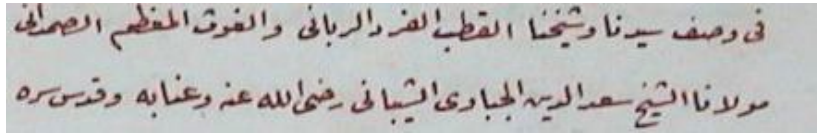 فى وصف سيدنا وشيخنا القطب الفرد الربانى والغوث المعظم الصمدانى
مولانا الشيخ سعد الدين الجباوى الشيبانى رضى الله عنه وعنا به وقدس سره